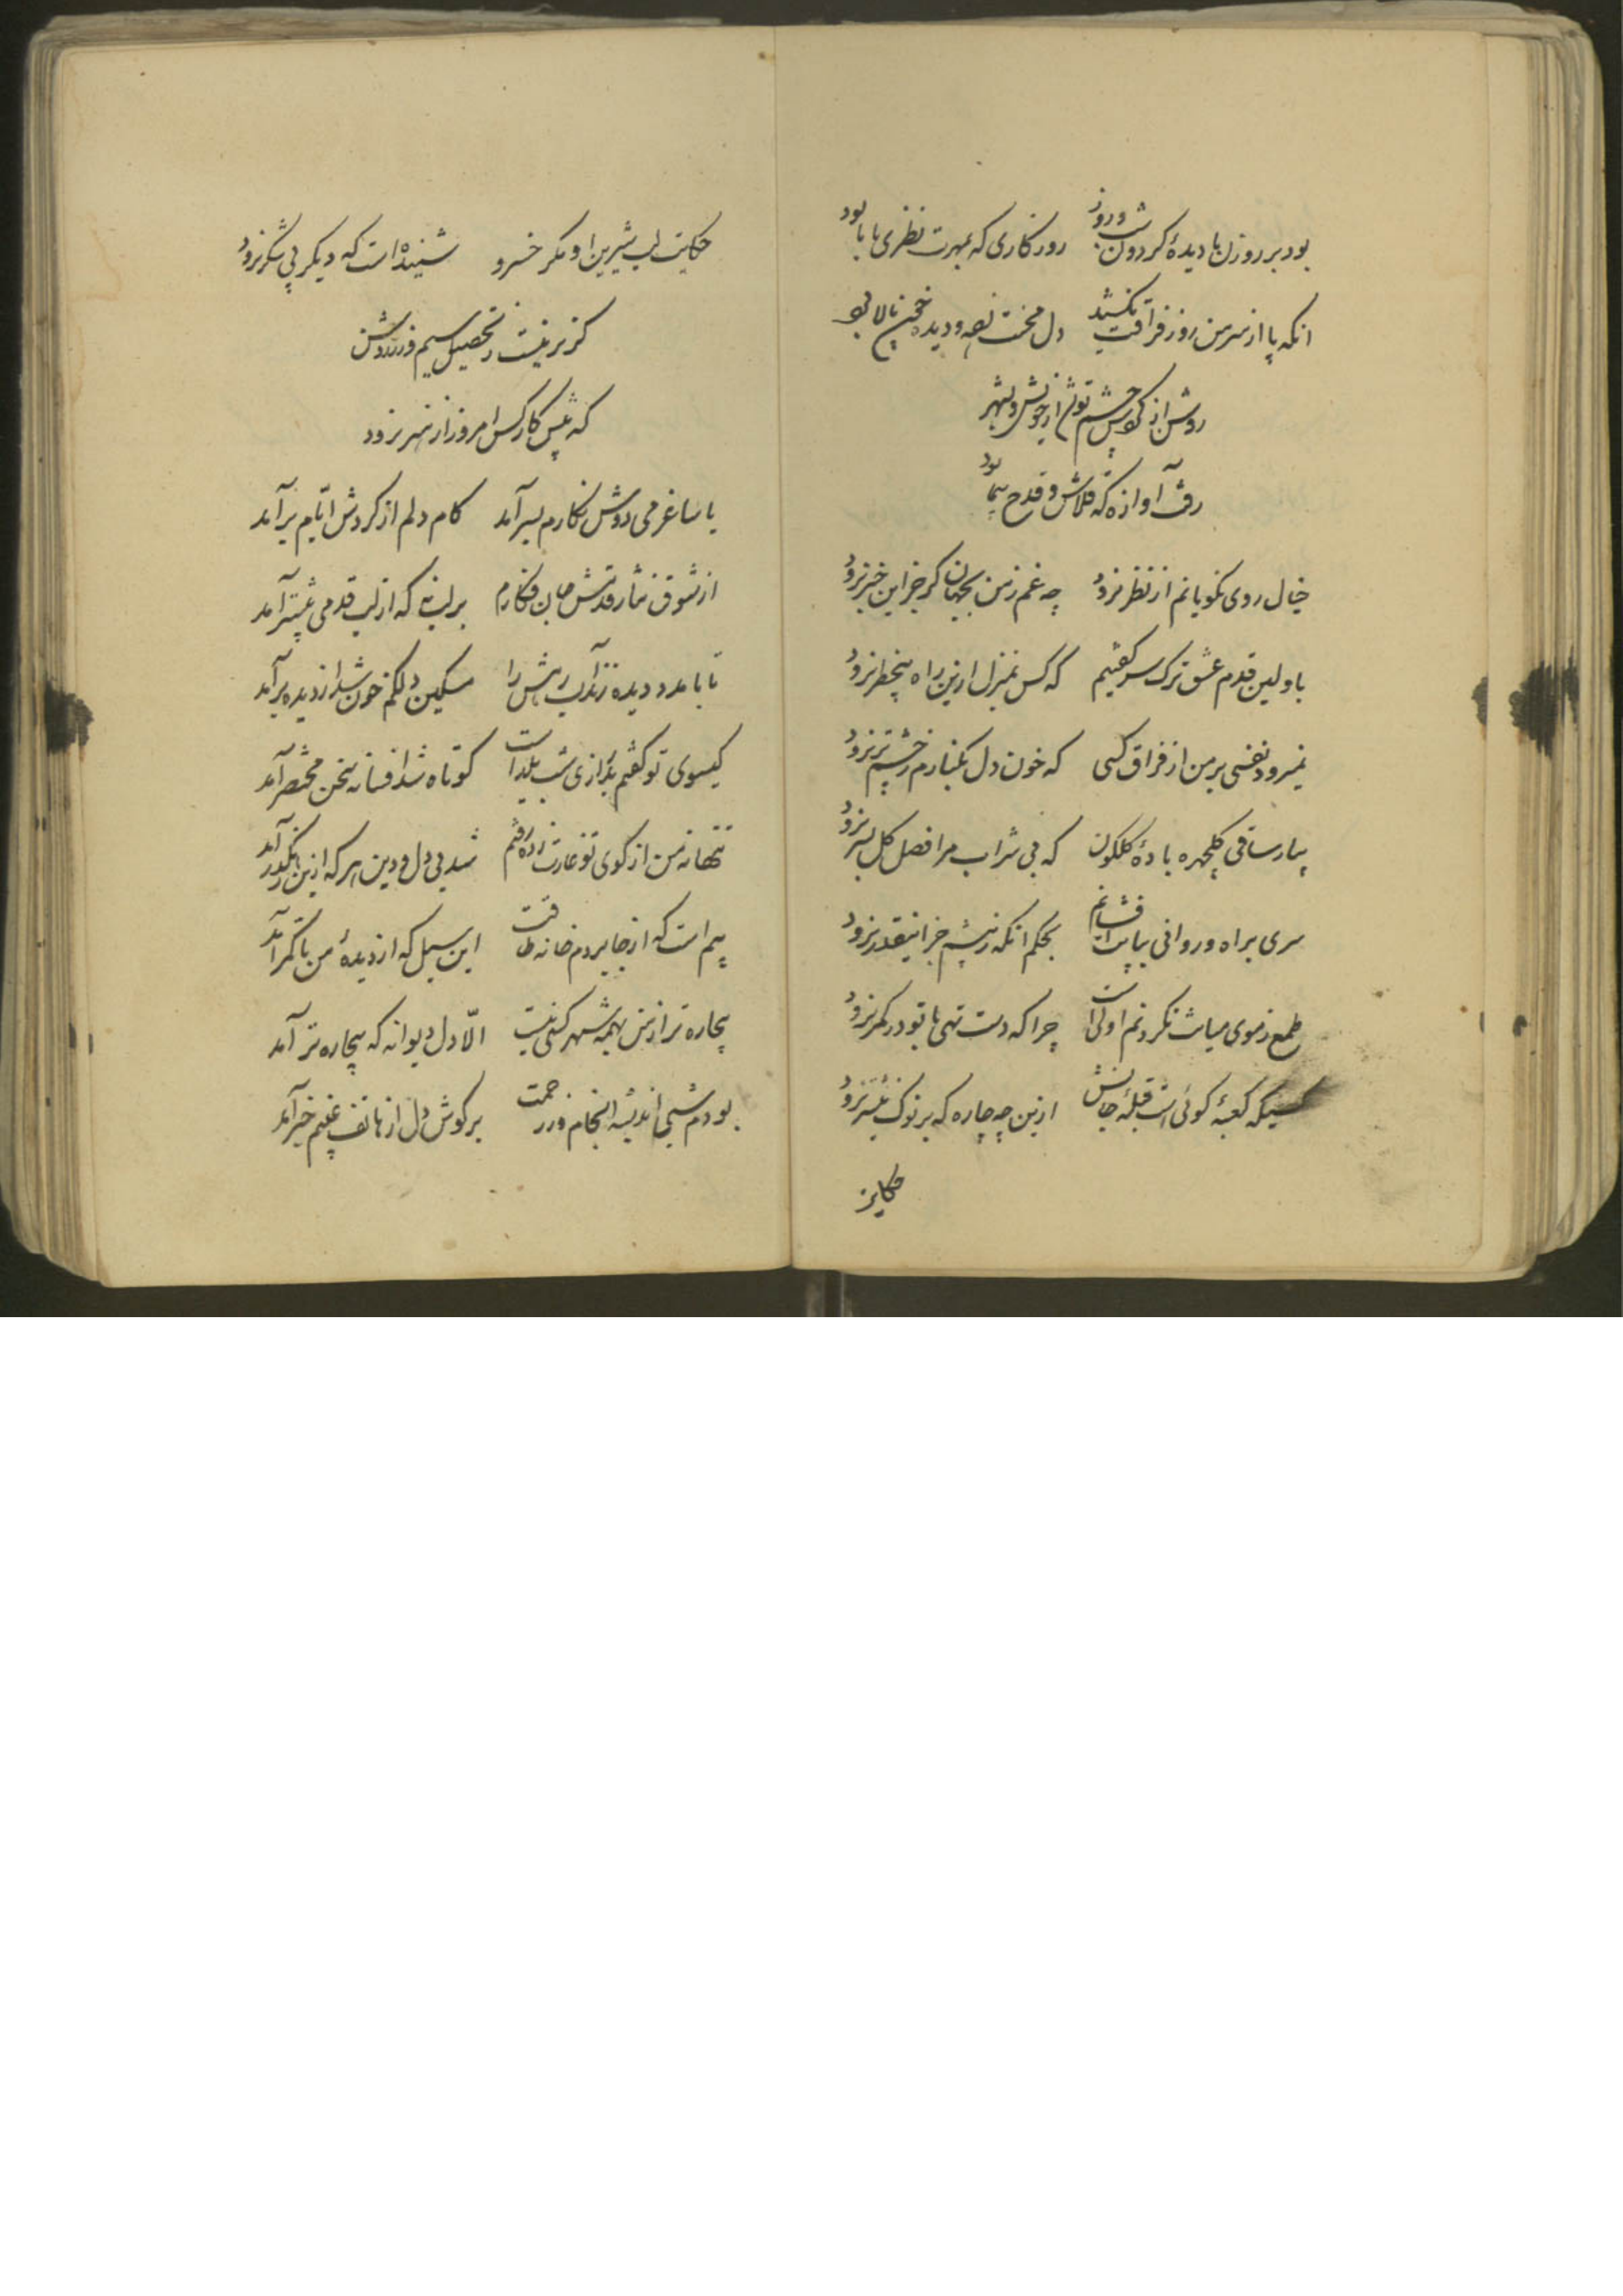 بود بر روزن ما دیدهٔ کردون شب و روز روزکاری که بمهرت نظری با ما بود
انکه پا از سر من روز فراقت نکشید دل محنت و دیده خون پالا بود
روشن از چشم تو
رفت آوازه که قلاش و قدح پیما بود
خیال روی نکویانم از نظر نرود چه غم ز من بجهان کر جز این خبر نرود
باولین قدم عشق ترک سر کفتیم که کس بمنزل ازین راه بیخطر نرود
نمیرود نفسی بر من از فراق کسی که خون دل بکنارم ز چشم تر نرود
بیار ساقی کلچهره بادهٔ کلکون که بی شراب مرا فصل کل بسر نرود
سری براه ور وانی بپایت افشانم بحکم انکه ز پیشم جز اینقدر نرود
طمع ز موی میانت نکردنم اولی است چرا که دست تهی با تو در کمر نرود
کسیکه کعبهٔ کوئی است قبلهٔ جانش ازین چه چاره که بر نوک نیشتر نرود
حکایت
حکایت لب شیرین او مکر خسرو شنیده است که دیکر پی شکر نرود
کزیر نیست ز تحصیل سیم و زر
که پیش کار کس امروز از هنر نرود
با ساغر می دوش نکارم بسر آمد کام دلم از کردش ایام بر آمد
از شوق نثار قدمش جان فکارم بر لب که از لب قدمی پیشتر آمد
تا با مدد دیده زند آب رهش را مسکین دلکم خون شد و از دیده بر آمد
کیسوی تو کفتم بدرازی شب یلداست کوتاه شد افسانه سخن مختصر آمد
تنها نه من از کوی تو غارت زده رفتم شد بی دل و دین هر که ازین رهکذر آمد
بیم است که از جا ببرد خانه طاقت این سیل که از دیدهٔ من تا کمر آمد
بیچاره تر از من بهمه شهر کسی نیست الّا دل دیوانه که بیچاره تر آمد
بودم شبی اندیشه انجام و ز رحمت بر کوش دل از هاتف غیبم خبر آمد